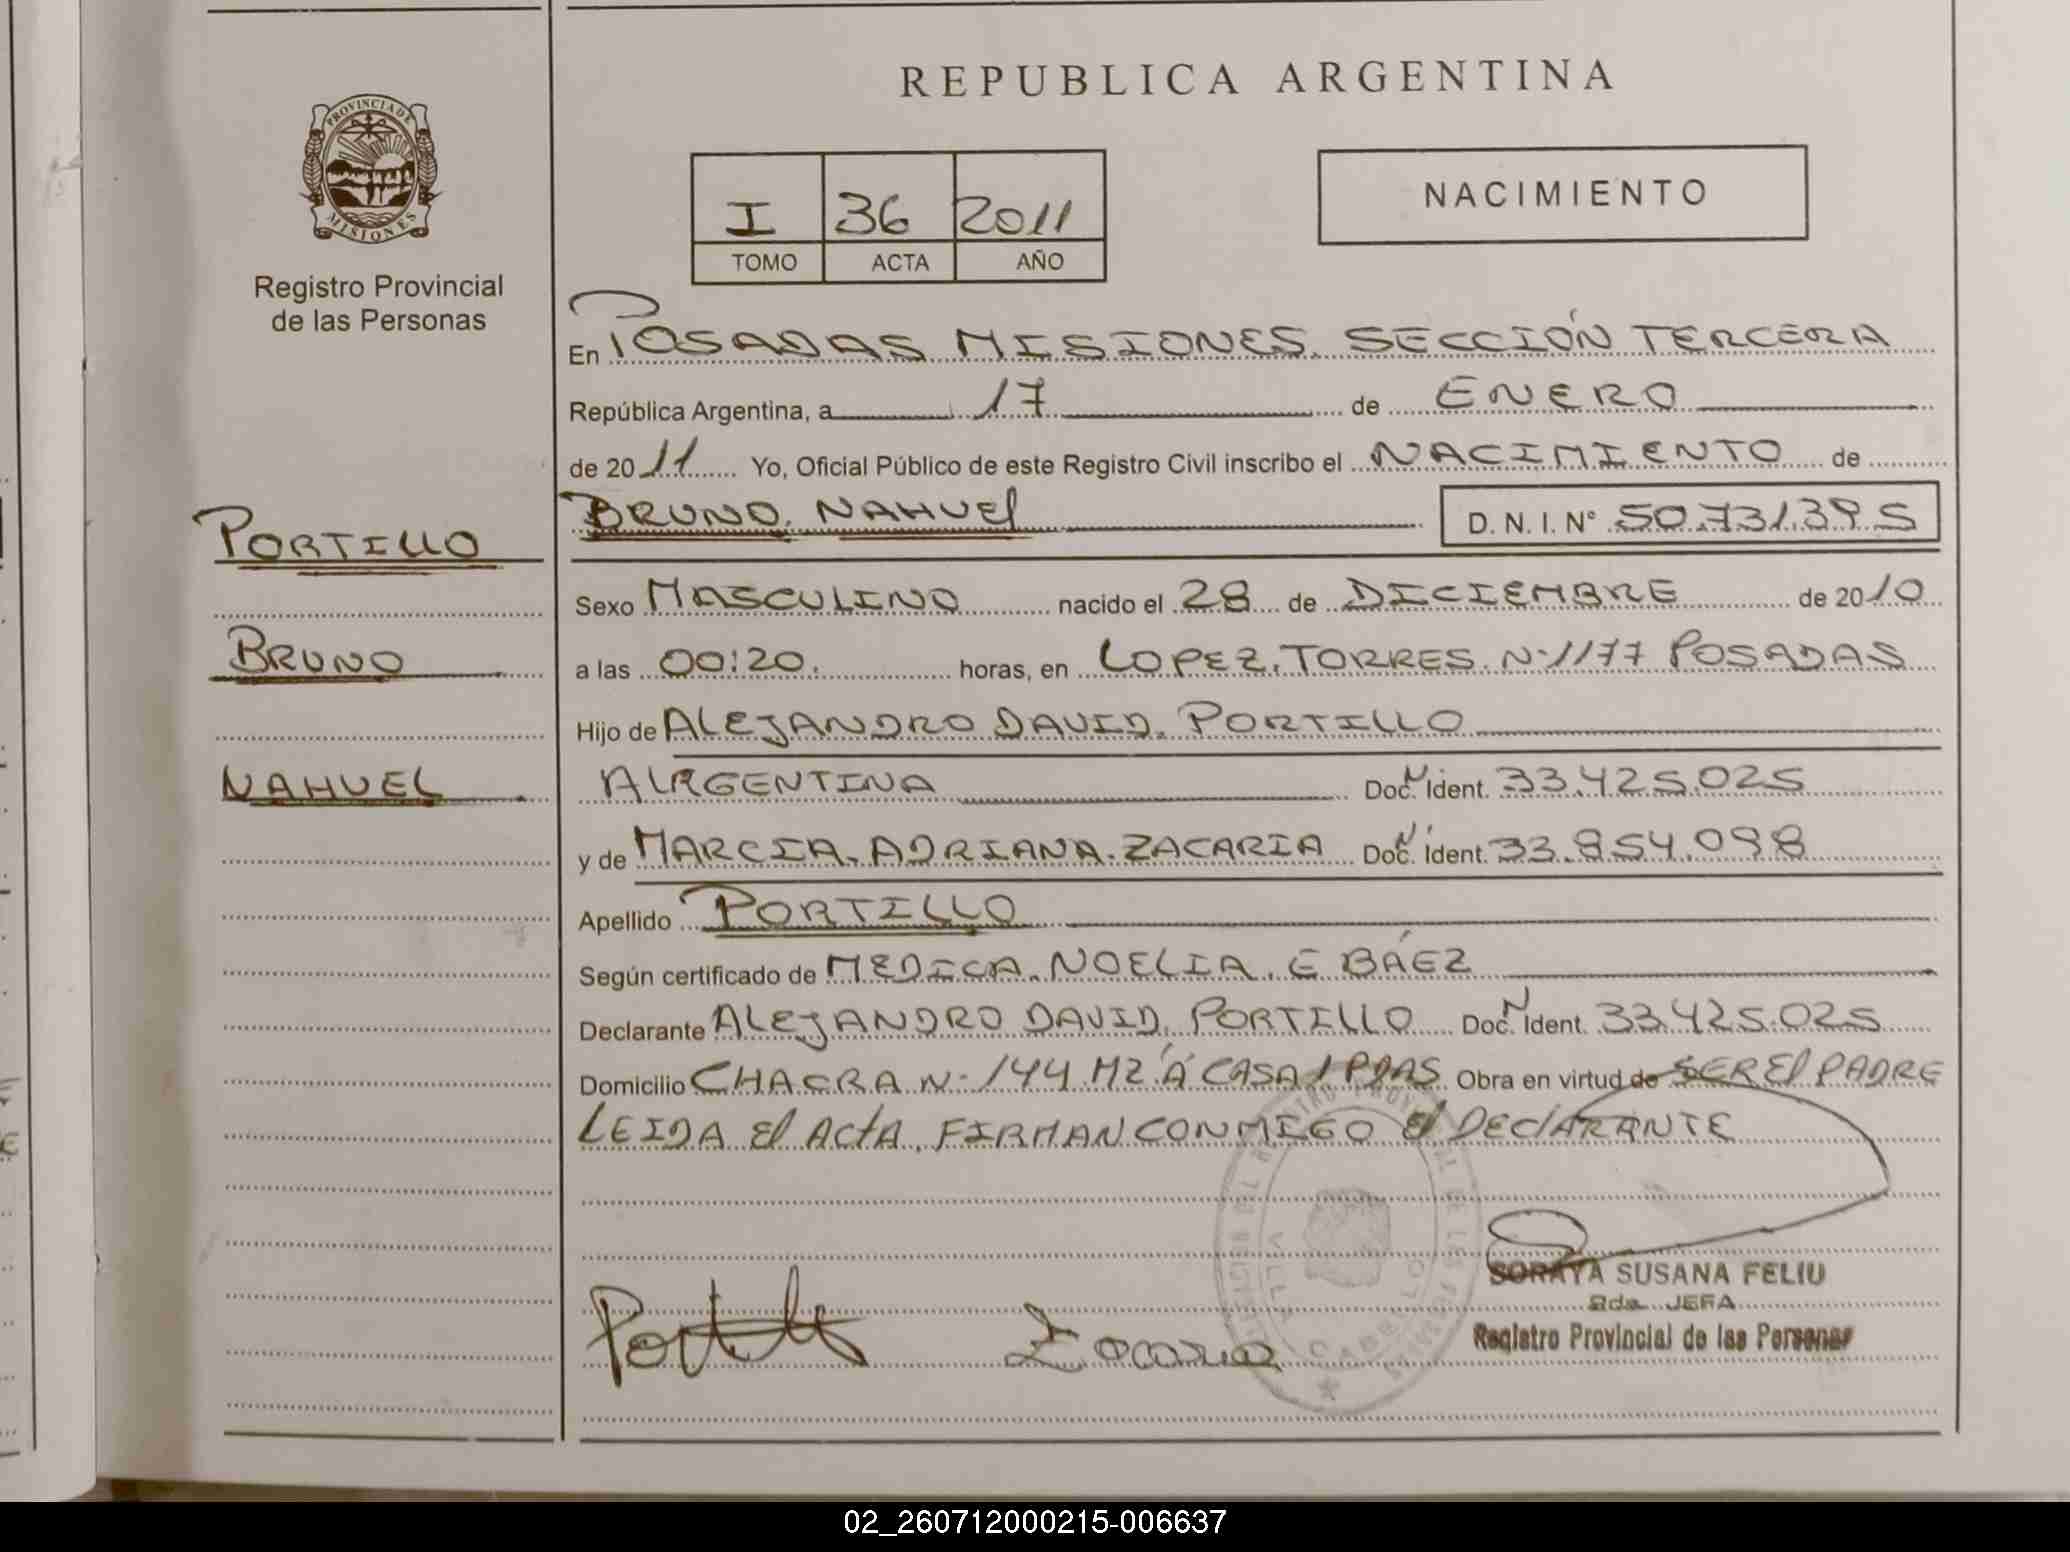 REPUBLICA ARGENTINA
PROVINCIA DE
MISIONES
Registro Provincial
de las Personas
I 36 2011
TOMO ACTA AÑO
NACIMIENTO
En POSADAS MISIONES. SECCIÓN TERCERA
República Argentina, a 17 de ENERO
de 2011 Yo, Oficial Público de este Registro Civil inscribo el NACIMIENTO de
BRUNO. NAHUEl D. N. I. N° 50.731.395
PORTILLO
Sexo MASCULINO nacido el 28 de DICIEMBRE de 2010
BRUNO
a las 00:20. horas, en LOPEZ. TORRES. N·1177 POSADAS
Hijo de ALEJANDRO DAVID. PORTILLO
NAHUEL
ARGENTINA Doc. N Ident. 33.425.025
y de MARCIA. ADRIANA. ZACARIA Doc. N Ident. 33.854.098
Apellido PORTILLO
Según certificado de MEDICA. NOELIA. E BÁEZ
Declarante ALEJANDRO DAVID. PORTILLO Doc. N Ident. 33.425.025
Domicilio CHACRA N· 144 MZ Á CASA 1 PDAS Obra en virtud de SER El PADRE
LEIDA El ActA, FIRMAN CONMIGO El DEClARANTE
SORAYA SUSANA FELIU
2da. JEFA
Registro Provincial de las Personas
Portillo Zacaria
VILLA CABELLO
02_260712000215-006637